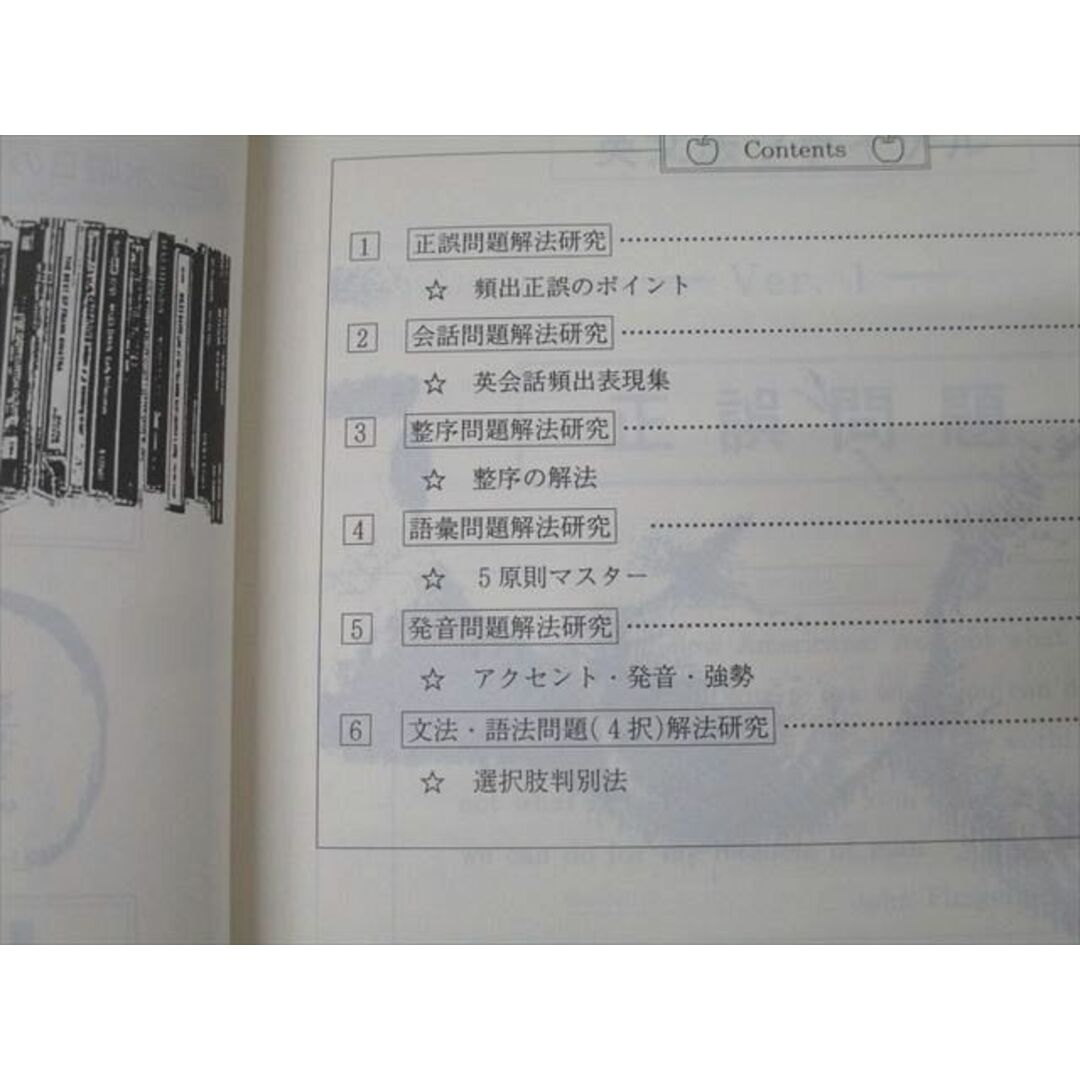 Contents
1 正誤問題解法研究
☆ 頻出正誤のポイント
2 会話問題解法研究
☆ 英会話頻出表現集
3 整序問題解法研究
☆ 整序の解法
4 語彙問題解法研究
☆ 5原則マスター
5 発音問題解法研究
☆ アクセント・発音・強勢
6 文法・語法問題(4択)解法研究
☆ 選択肢判別法
Ver. 1
正誤問題